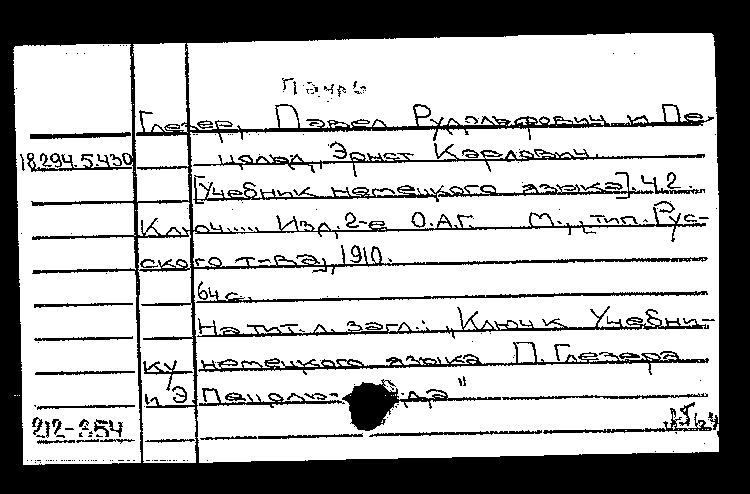 Пауль
Глезер, Павел Рудольфович и Пе-
18.294.5.430 цольд, Эрнст Карлович.
[Учебник немецкого языка]. Ч.2.
Ключ..... Изд. 2-е О.А.Г. М., "тип. Рус-
ского т-ва", 1910.
64 с.
На тит. л. загл.: "Ключ к Учебни-
ку немецкого языка П. Глезера
и Э. Пецоль- да"
212-354